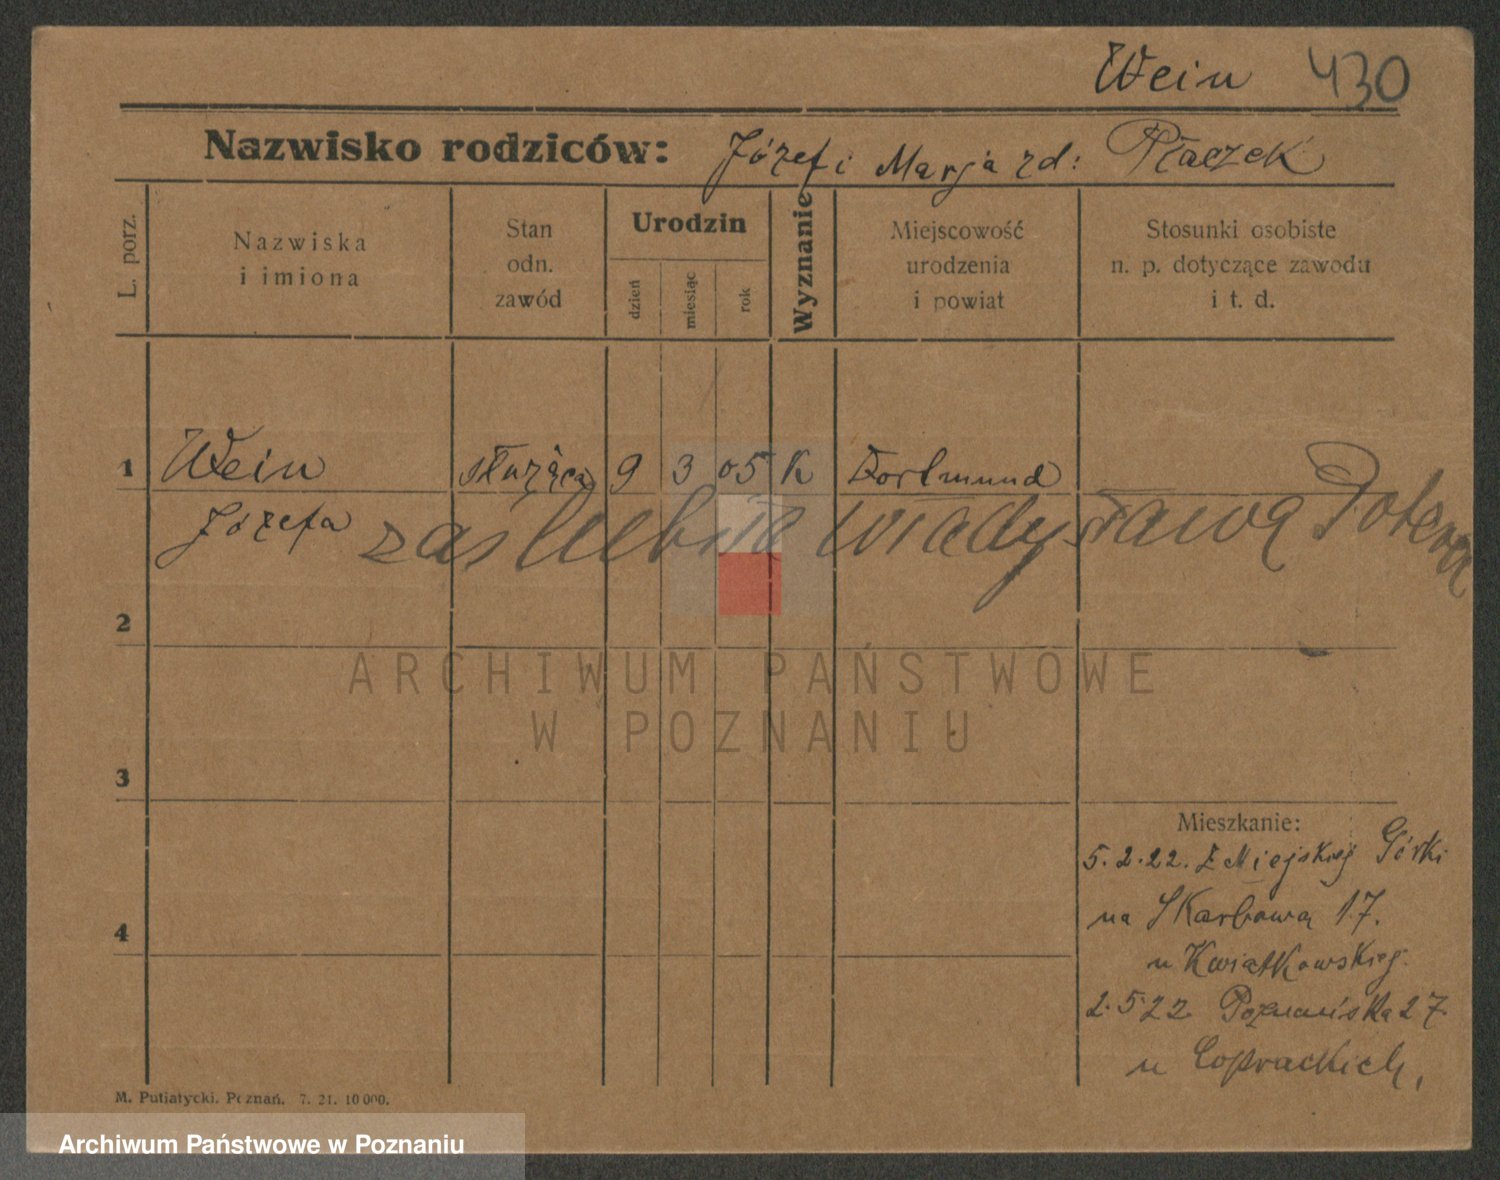 Wein 430
Nazwisko rodziców: Józef i Marja zd: Płaczek
L. porz.
Nazwiska
i imiona
Stan
odn.
zawód
Urodzin
dzień
miesiąc
rok
Wyznanie
Miejscowość
urodzenia
i powiat
Stosunki osobiste
n. p. dotyczące zawodu
i t. d.
1 Wein służąca 9 3 05 K Dortmund
Józefa zaślubiła Władysława
2
3
4
ARCHIWUM PAŃSTWOWE
W POZNANIU
Mieszkanie:
5.2.22. Z Miejskiej Górki
na Skarbową 17.
u Kwiatkowskiej.
2.5.22 Poznańska 27
u
M. Putiatycki. Poznań. 7. 21. 10 000.
Archiwum Państwowe w Poznaniu